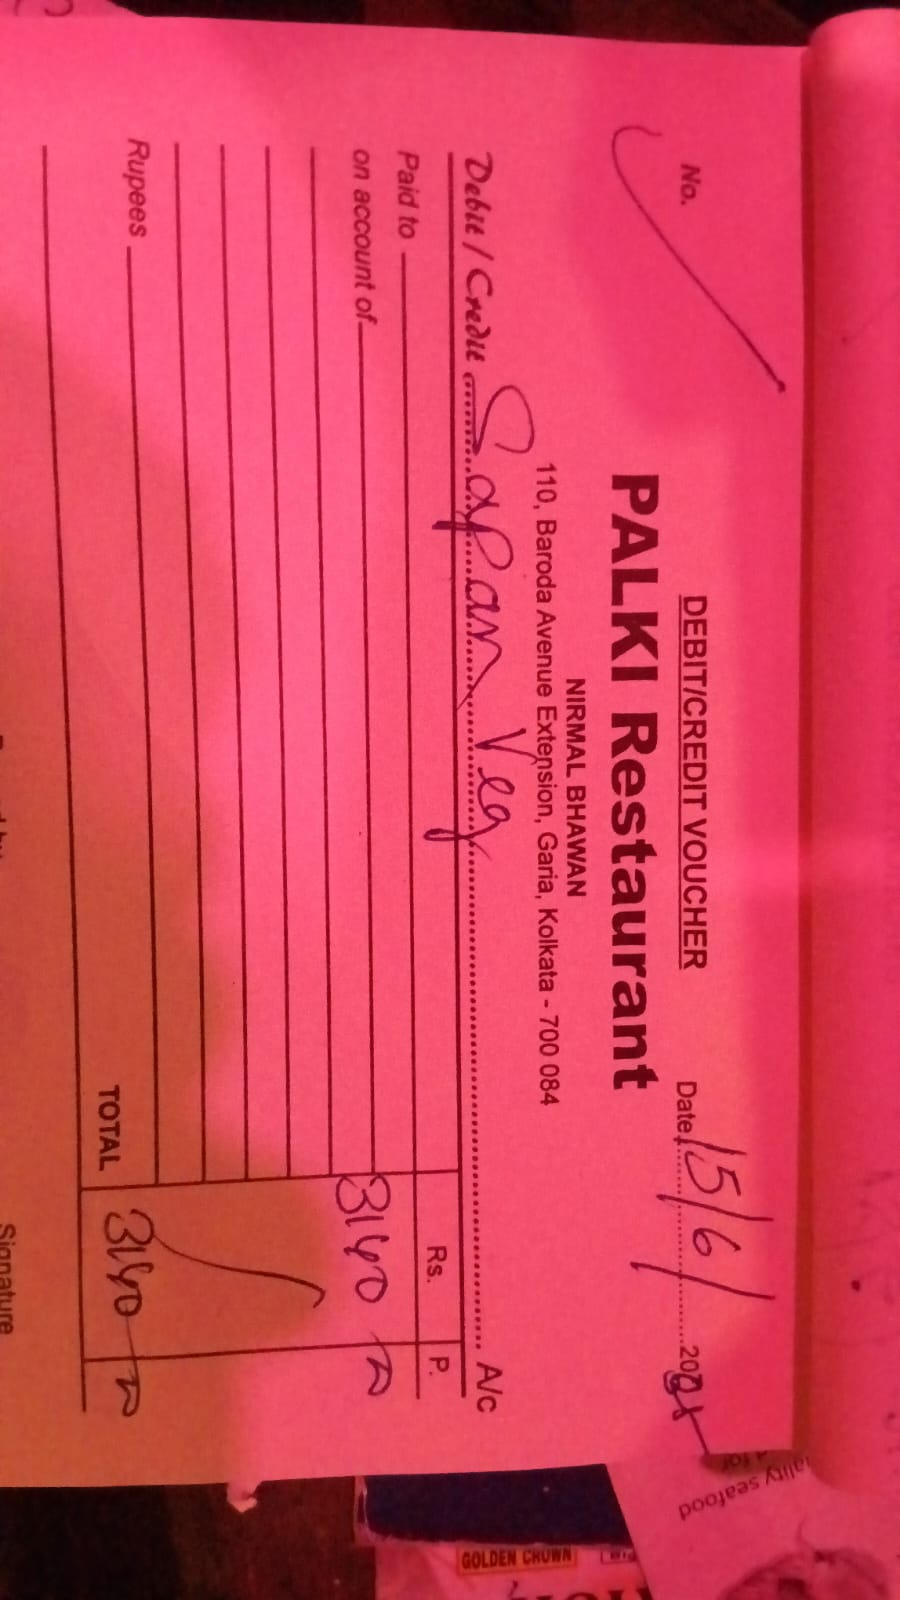 DEBIT/CREDIT VOUCHER
No.
Date 15/6/
PALKI Restaurant
NIRMAL BHAWAN
110, Baroda Avenue Extension, Garia, Kolkata - 700 084
Debit / Credit Sapan Veg A/c
Rs. P.
Paid to
on account of 3140
Rupees
TOTAL 3140
Signature
ality seafood
GOLDEN CROWN